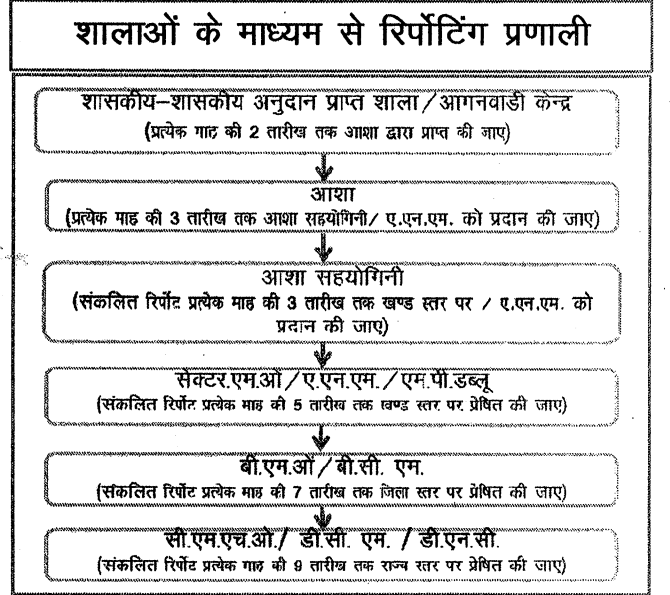 शालाओं के माध्यम से रिर्पोटिंग प्रणाली
शासकीय–शासकीय अनुदान प्राप्त शाला/आगनवाडी केन्द्र
(प्रत्येक माह की 2 तारीख तक आशा द्वारा प्राप्त की जाए)
आशा
(प्रत्येक माह की 3 तारीख तक आशा सहयोगिनी/ ए.एन.एम. को प्रदान की जाए)
आशा सहयोगिनी
(संकलित रिर्पोट प्रत्येक माह की 3 तारीख तक खण्ड स्तर पर / ए.एन.एम. को
प्रदान की जाए)
सेक्टर.एम.ओ/ए.एन.एम./एम.पी.डब्लू
(संकलित रिर्पोट प्रत्येक माह की 5 तारीख तक खण्ड स्तर पर प्रेषित की जाए)
बी.एम.ओं/बी.सी. एम.
(संकलित रिर्पोट प्रत्येक माह की 7 तारीख तक जिला स्तर पर प्रेषित की जाए)
सी.एम.एच.ओ./ डी.सी. एम. / डी.एन.सी.
(संकलित रिर्पोट प्रत्येक माह की 9 तारीख तक राज्य स्तर पर प्रेषित की जाए)